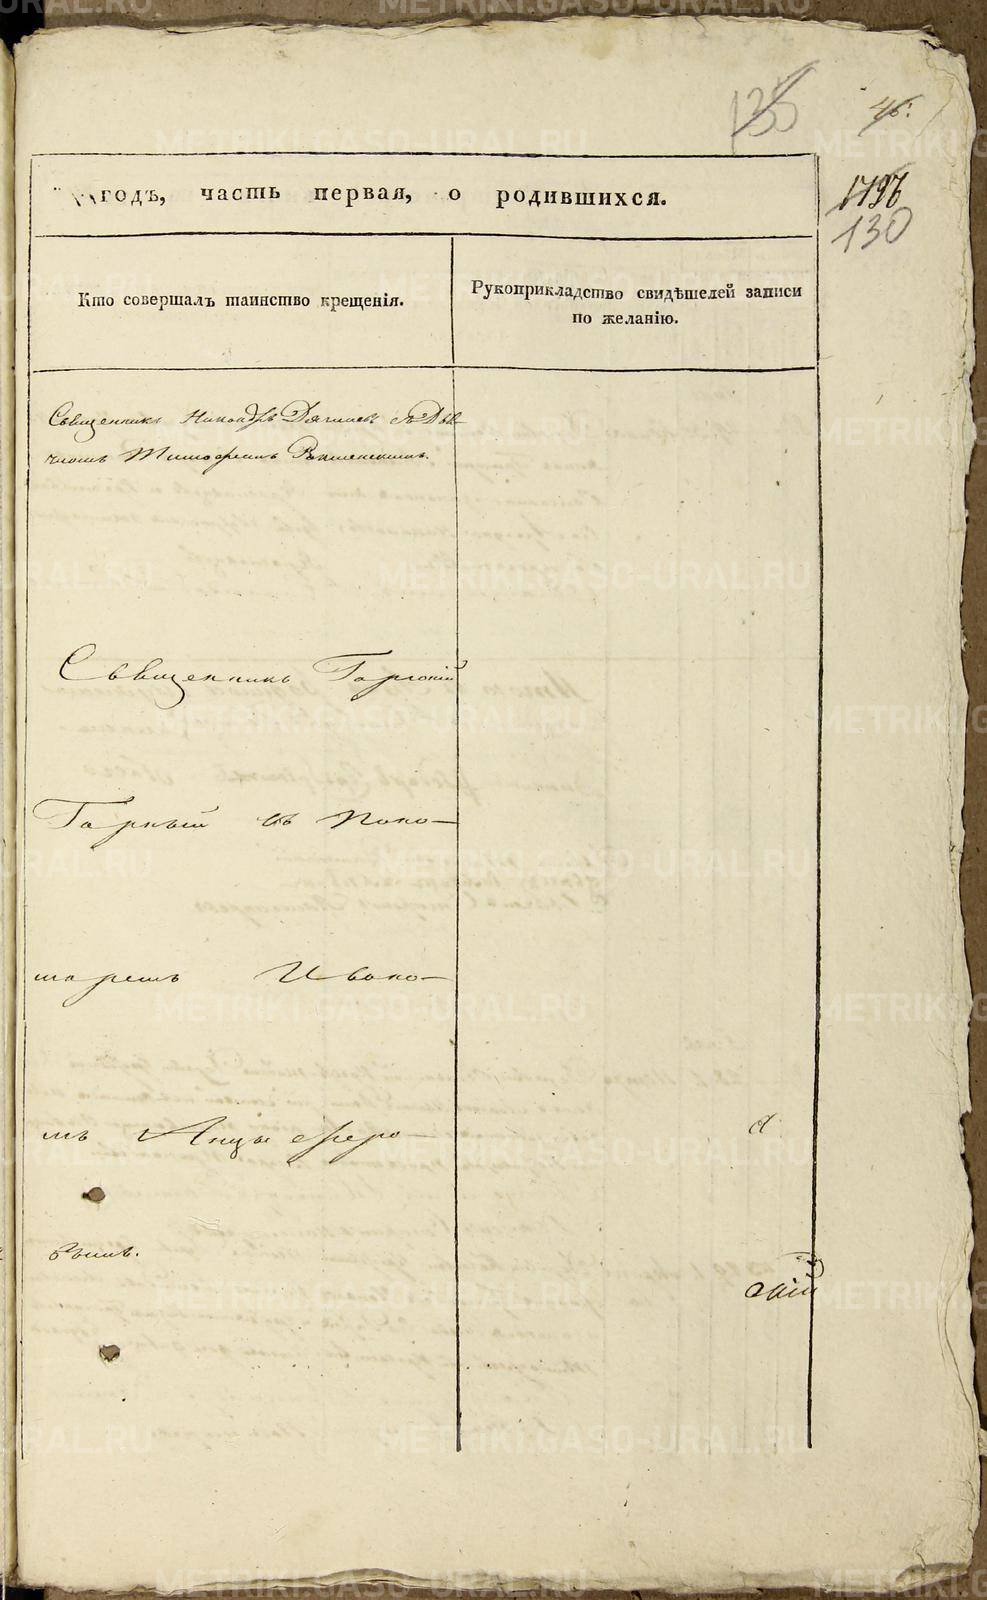 135
46.
годъ, часть первая, о родившихся.
130
Кто совершалъ таинство крещенія.
Рукоприкладство свидѣтелей записи
по желанію.
Священникъ Никандръ Дягилевъ съ Дья-
чкомъ Тимофеемъ
Священникъ Горгоній
Горный съ Поно-
маремъ Ивано-
мъ
скій
METRIKI.GASO-URAL.RU